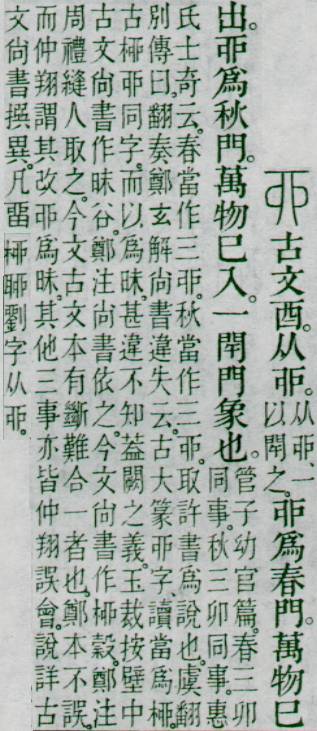 丣 古文酉。从戼。从戼、一以閉之。戼爲春門。萬物巳
出。丣爲秋門。萬物巳入。一閉門象也。管子幼官篇。春三卯同事。秋三卯同事。惠
氏士奇云。春當作三戼。秋當作三丣。取許書爲說也。虞翻
別傳曰。翻奏鄭玄解尙書違失云。古大篆丣字、讀當爲桺。
古桺丣同字。而以爲昧。甚違不知葢闕之義。玉裁按壁中
古文尙書作昧谷。鄭注尙書依之。今文尙書作桺穀。鄭注
周禮縫人取之。今文古文本有斷難合一者也。鄭本不誤。
而仲翔謂其改丣爲昧。其他三事亦皆仲翔誤會。說詳古
文尙書撰異。凡畱桺聊劉字从丣。